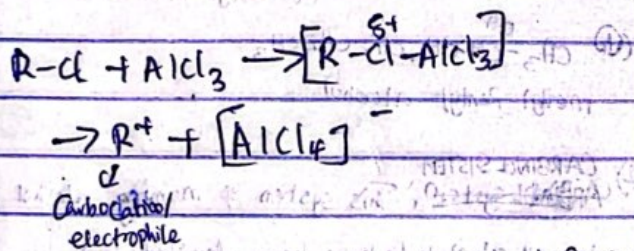 R-Cl + AlCl₃ → [R-Cl^δ+-AlCl₃]
→ R⁺ + [AlCl₄]⁻
Carbocation/
electrophile